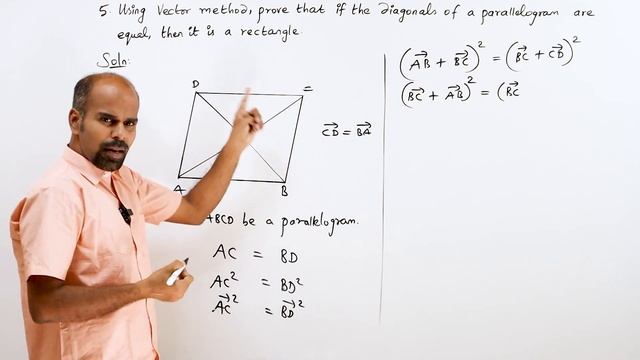 5. Using Vector method, prove that if the diagonals of a parallelogram are
equal, then it is a rectangle.
Soln:
D C
A B
CD→ = BA→
ABCD be a parallelogram.
AC = BD
AC² = BD²
AC→² = BD→²
(AB→ + BC→)² = (BC→ + CD→)²
(BC→ + AB→)² = (BC→